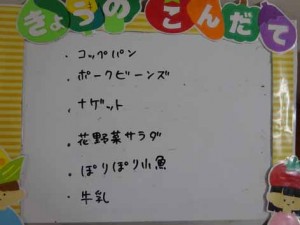 きょうのこんだて
・コッペパン
・ポークビーンズ
・ナゲット
・花野菜サラダ
・ぽりぽり小魚
・牛乳